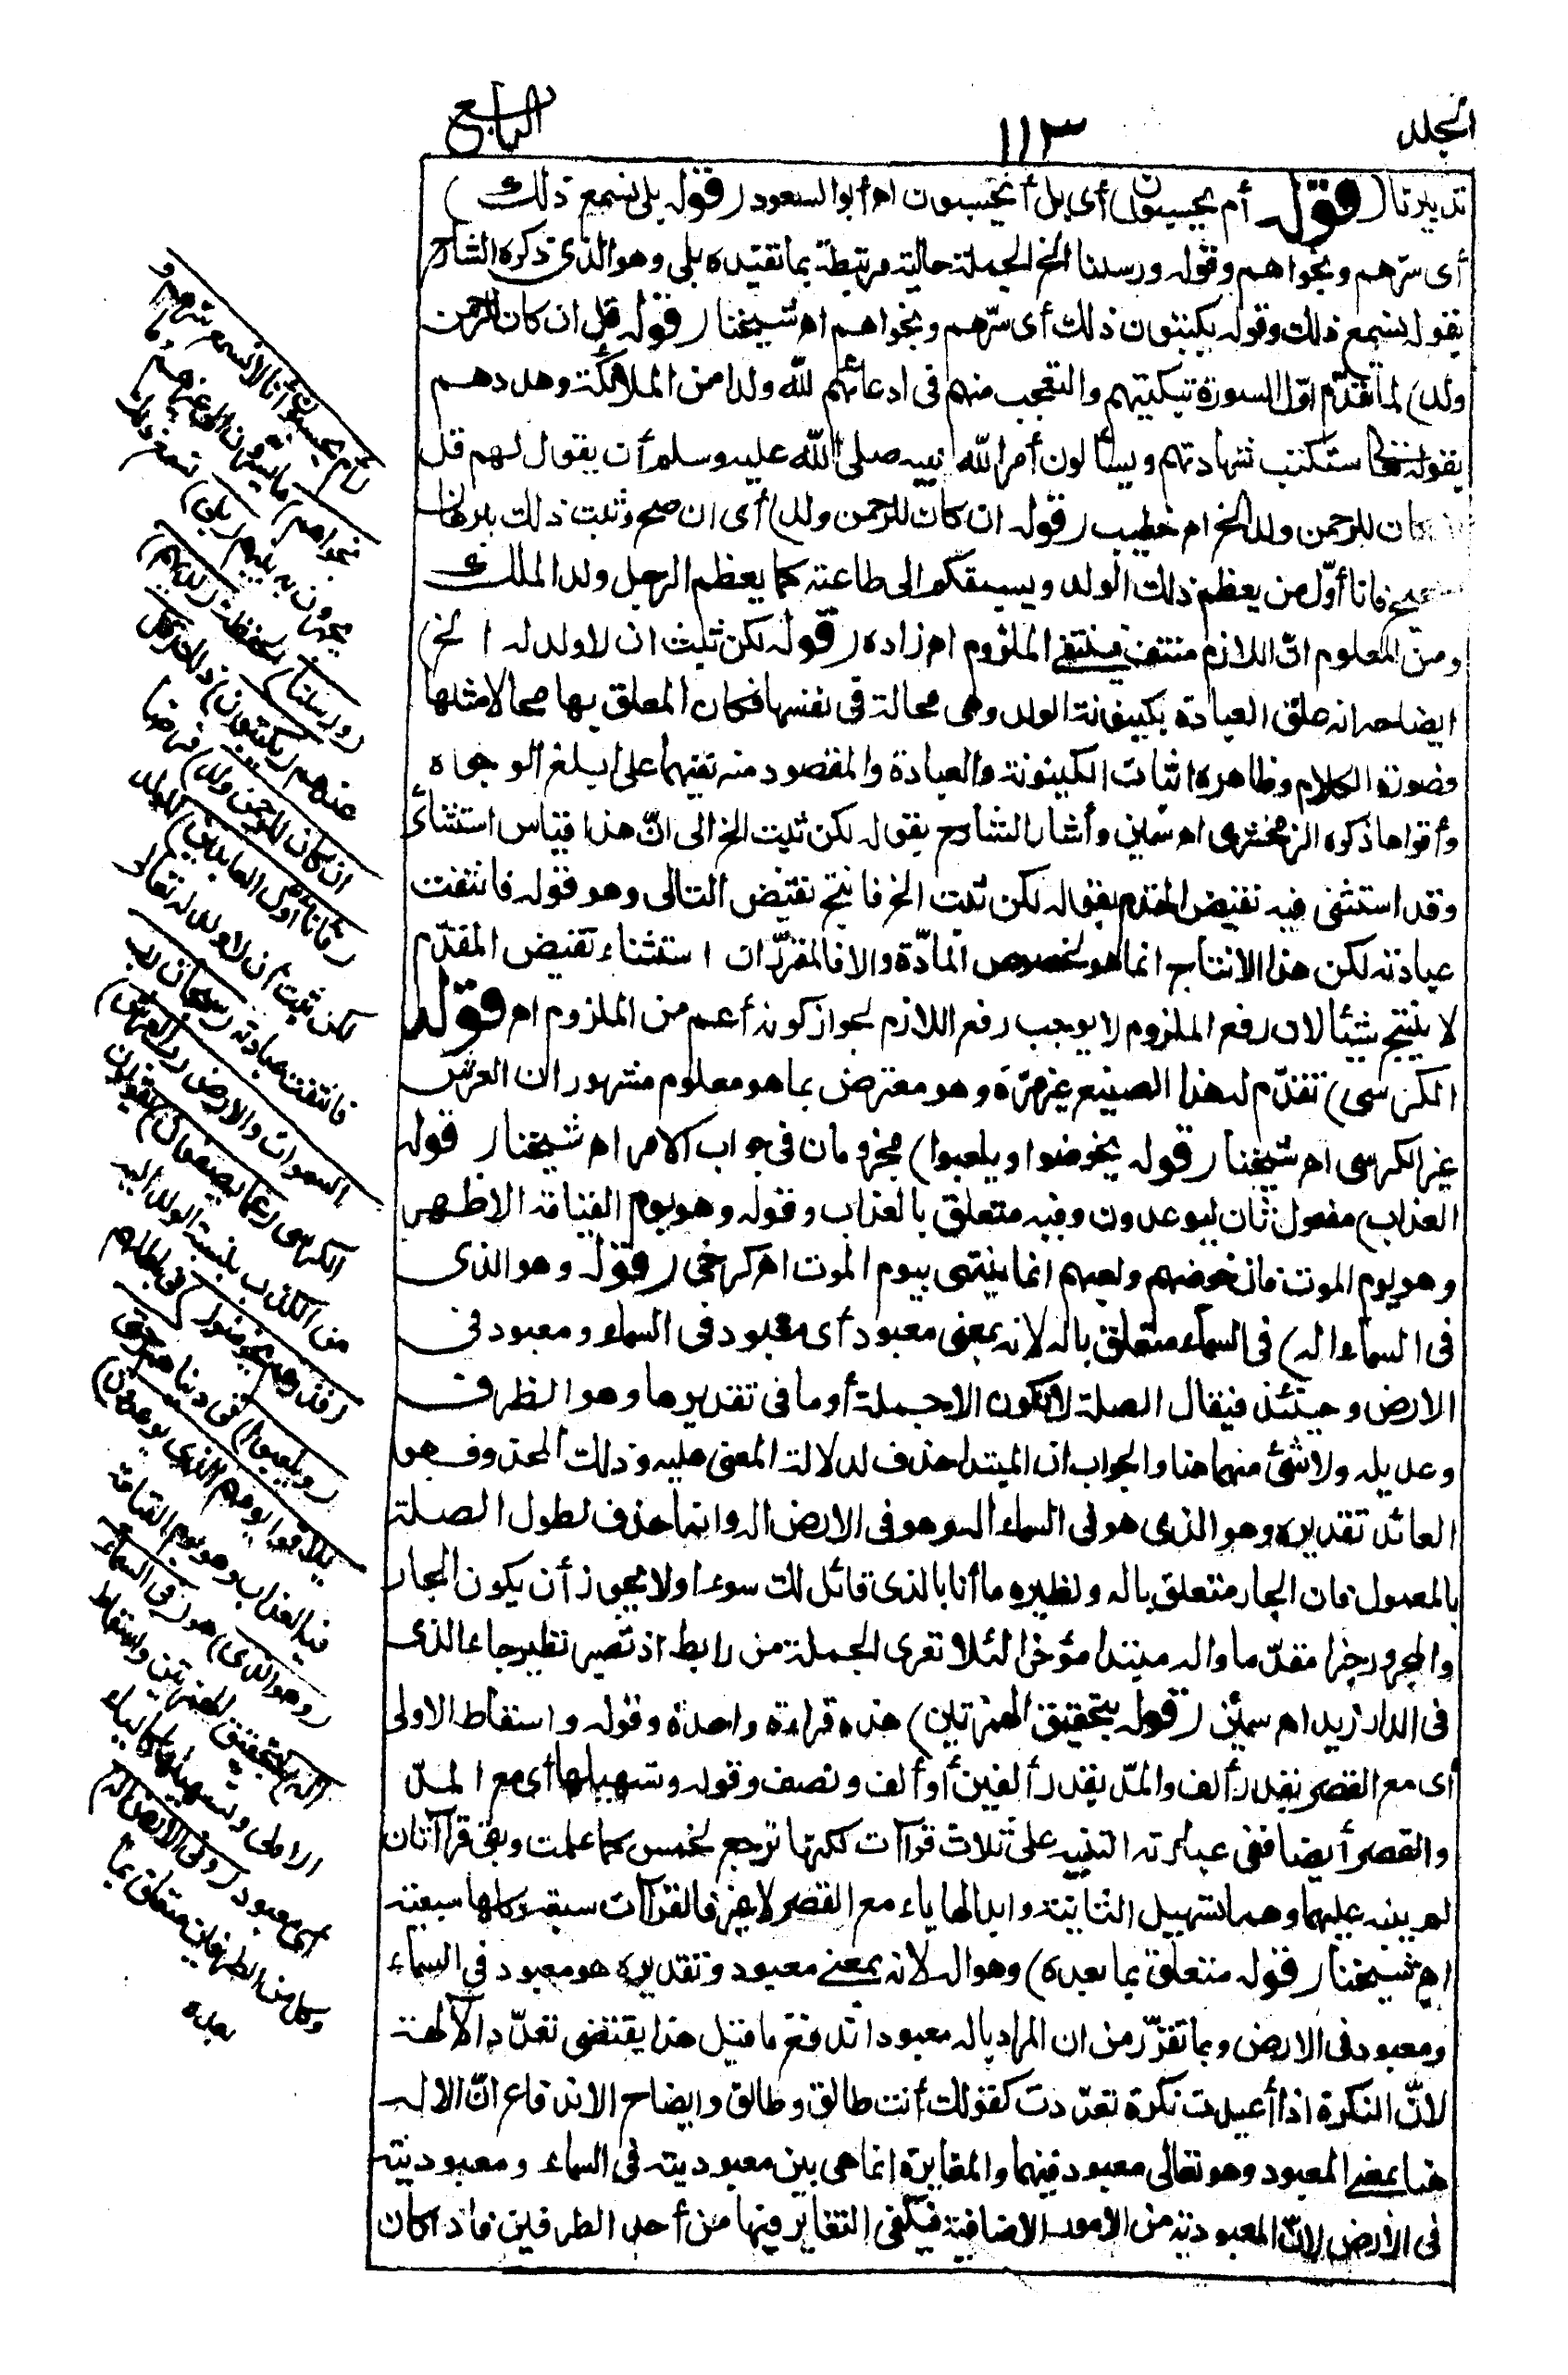 المجلد
١١٣
الرابع
تدبيرنا (قوله أم يحسبون) أى بل أيحسبون اه أبو السعود (قوله بلى نسمع ذلك)
أى سرّهم ونجواهم وقوله ورسلنا الخ الجملة حالية مرتبطة بما تفيده بلى وهو الذى ذكره الشارح
بقوله نسمع ذلك وقوله يكتبون ذلك أى سرّهم ونجواهم اه شيخنا (قوله قل ان كان للرحمن
ولد) لما تقدّم أوّل السورة تبكيتهم والتعجب منهم فى ادعائهم لله ولدا من الملائكة وهددهم
بقوله ستكتب شهادتهم ويسألون أمر الله نبيه صلى الله عليه وسلم أن يقول لهم قل
ان كان للرحمن ولد الخ اه خطيب (قوله ان كان للرحمن ولد) أى ان صح وثبت ذلك ببرهان
صحيح فانا أوّل من يعظم ذلك الولد ويسبقكم الى طاعته كما يعظم الرجل ولد الملك
ومن المعلوم انّ اللازم منتف فينتفى الملزوم اه زاده (قوله لكن ثبت ان لا ولد له الخ)
ايضاحه انه علق العبادة بكينونة الولد وهى محالة فى نفسها فكان المعلق بها محالا مثلها
فصورة الكلام وظاهره اثبات الكينونة والعبادة والمقصود منه نفيهما على أبلغ الوجوه
وأقواها ذكره الزمخشرى اه سمين وأشار الشارح بقوله لكن ثبت الخ الى انّ هذا قياس استثنائى
وقد استثنى فيه نقيض المقدّم بقوله لكن ثبت الخ فانتج نقيض التالى وهو قوله فانتفت
عبادته لكن هذا الانتاج انما هو لخصوص المادّة والا فالمقرّر ان استثناء نقيض المقدّم
لا ينتج شيئا لان رفع الملزوم لا يوجب رفع اللازم لجواز كونه أعم من الملزوم اه (قوله
الكرسى) تقدّم له هذا الصنيع غير مرّة وهو معترض بما هو معلوم مشهور ان العرش
غير الكرسى اه شيخنا (قوله يخوضوا ويلعبوا) مجزومان فى جواب الامر اه شيخنا (قوله
العذاب) مفعول ثان ليوعدون وفيه متعلق بالعذاب وقوله وهو يوم القيامة الاظهر
وهو يوم الموت فان خوضهم ولعبهم انما ينتهى بيوم الموت اه كرخى (قوله وهو الذى
فى السماء اله) فى السماء متعلق باله لانه بمعنى معبود أى معبود فى السماء ومعبود فى
الارض وحينئذ فيقال الصلة لا تكون الا جملة أو ما فى تقديرها وهو الظرف
وعديله ولا شئ منهما هنا والجواب ان المبتدا حذف لدلالة المعنى عليه وذلك المحذوف هو
العائد تقديره وهو الذى هو فى السماء اله وهو فى الارض اله وانما حذف لطول الصلة
بالمعمول فان الجار متعلق باله ونظيره ما أنا بالذى قائل لك سوءا ولا يجوز أن يكون الجار
والمجرور خبرا مقدّما واله مبتدا مؤخرا لئلا تعرى الجملة من رابط اذ تصير نظير جاء الذى
فى الدار زيد اه سمين (قوله بتحقيق الهمزتين) هذه قراءة واحدة وقوله واسقاط الاولى
أى مع القصر بقدر ألف والمدّ بقدر ألفين أو ألف ونصف وقوله وتسهيلها أى مع المدّ
والقصر أيضا ففى عبارته التنبيه على ثلاث قرآات لكنها ترجع لخمس كما علمت وبقى قرآتان
لم ينبه عليهما وهما تسهيل الثانية وابدالها ياء مع القصر لا غير فالقرآات سبعة وكلها سبعية
اه شيخنا (قوله متعلق بما بعده) وهو اله لانه بمعنى معبود وتقديره هو معبود فى السماء
ومعبود فى الارض وبما تقرّر من ان المراد باله معبود اندفع ما قيل هذا يقتضى تعدّد الآلهة
لانّ النكرة اذا أعيدت نكرة تعدّدت كقولك أنت طالق وطالق وايضاح الاندفاع انّ الاله
هنا بمعنى المعبود وهو تعالى معبود فيهما والمغايرة انما هى بين معبوديته فى السماء ومعبوديته
فى الارض لانّ المعبودية من الامور الاضافية فيكفى التغاير فيها من أحد الطرفين فاذا كان
(أم يحسبون أنا لا نسمع سرهم و
نجواهم) ما يسرون الى غيرهم وما
يجهرون به بينهم (بلى) نسمع ذلك
(ورسلنا) الحفظة (لديهم)
عندهم (يكتبون) ذلك (قل
ان كان للرحمن ولد) فرضا
(فانا أوّل العابدين) للولد
لكن ثبت أن لا ولد له تعالى
فانتفت عبادته (سبحان رب
السموات والارض رب العرش)
الكرسى (عما يصفون) يقولون
من الكذب بنسبة الولد اليه
(فذرهم يخوضوا) فى باطلهم
(ويلعبوا) فى دنياهم (حتى
يلاقوا يومهم الذى يوعدون)
فيه العذاب وهو يوم القيامة
(وهو الذى) هو (فى السماء
اله) بتحقيق الهمزتين واسقاط
الاولى وتسهيلها كالياء
أى معبود (وفى الارض اله)
وكل من الظرفين متعلق بما
بعده